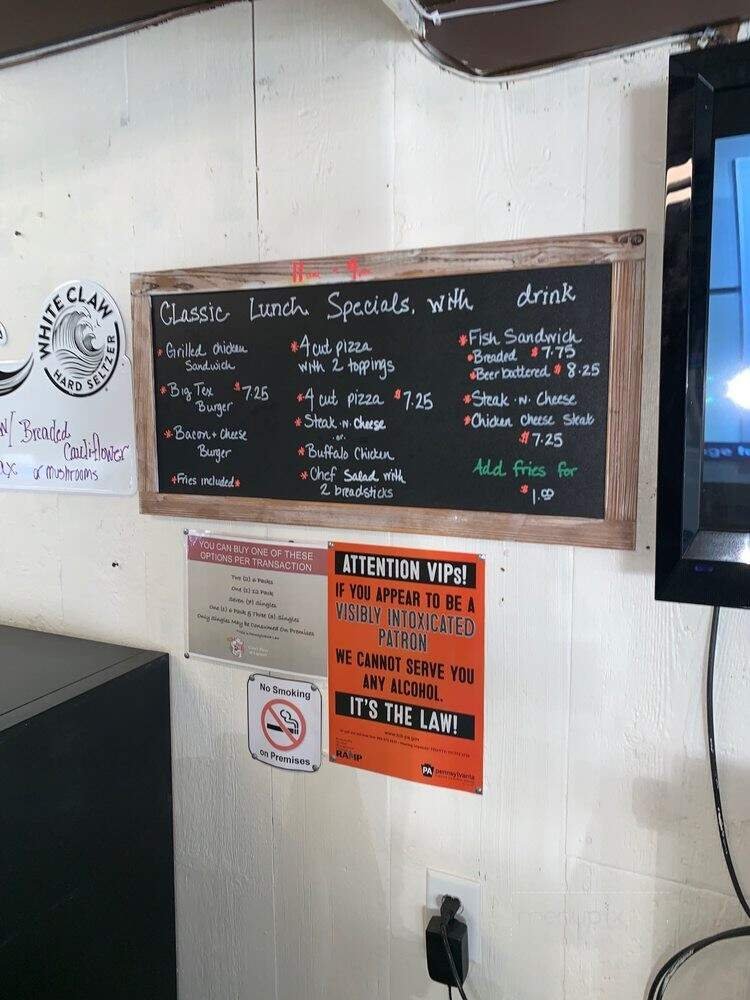 11am - 9pm
Classic Lunch Specials, with drink
* Grilled chicken
Sandwich
* Big Tex $7.25
Burger
* Bacon + cheese
Burger
*Fries included*
* 4 cut pizza
with 2 toppings
* 4 cut pizza $7.25
* Steak .N. cheese
or
* Buffalo Chicken
* Chef Salad with
2 breadsticks
* Fish Sandwich
* Breaded $7.75
* Beer battered $8.25
* Steak .N. Cheese
* Chicken Cheese Steak
$7.25
Add fries for
$1.00
WHITE CLAW
HARD SELTZER
w/ Breaded
Cauliflower
or mushrooms
YOU CAN BUY ONE OF THESE
OPTIONS PER TRANSACTION
Two (2) 6 Packs
One (1) 12 Pack
Seven (7) Singles
One (1) 6 Pack & Three (3) Singles
Only Singles May be Consumed On Premises
No Smoking
on Premises
ATTENTION VIPs!
IF YOU APPEAR TO BE A
VISIBLY INTOXICATED
PATRON
WE CANNOT SERVE YOU
ANY ALCOHOL.
IT'S THE LAW!
RAMP
PA pennsylvania